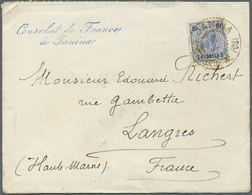 Consulat de France
à Janina
Monsieur Edouard Richert
rue Gambetta
Langres
(Haute Marne) France